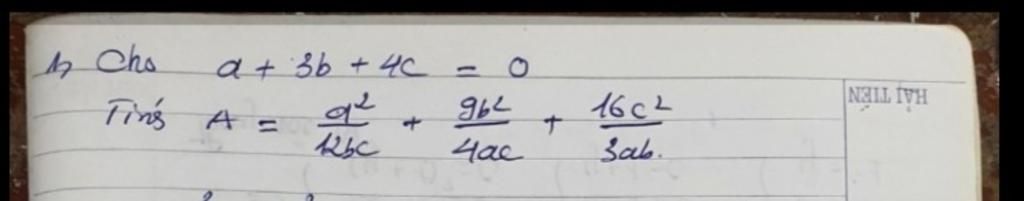 1, Cho a + 3b + 4c = 0
Tính A = a²/12bc + 9b²/4ac + 16c²/3ab.
HẢI TIẾN